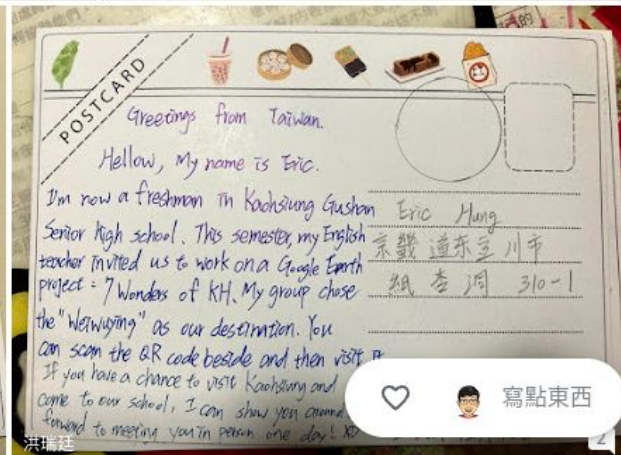 POSTCARD
Greetings from Taiwan.
Hellow, My name is Eric.
I'm now a freshman in Kaohsiung Gushan
Senior high school. This semester, my English
teacher invited us to work on a Google Earth
project: 7 Wonders of KH. My group chose
the "Weiwuying" as our destination. You
can scan the QR code beside and then visit it
If you have a chance to visit Kaohsiung and
come to our school, I can show you around
forward to meeting you in person one day! XD
Eric Hung
京畿道东豆川市
紙杏洞 310-1
寫點東西
洪瑞廷
2